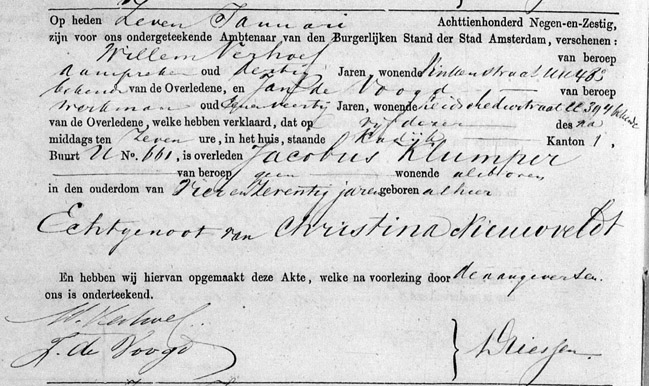 Op heden zeven Januari Achttienhonderd Negen-en-Zestig,
zijn voor ons ondergeteekende Ambtenaar van den Burgerlijken Stand der Stad Amsterdam, verschenen:
Willem Verhoef van beroep
aanspreker oud dertig Jaren, wonende
bekende van de Overledene, en Jan de Voogd van beroep
werkman oud Jaren, wonende
van de Overledene, welke hebben verklaard, dat op vijf dezer des na
middags ten zeven ure, in het huis, staande Kattenburg Kanton 1.
Buurt U No. 661, is overleden Jacobus Klumper
van beroep geen wonende aldaar
in den ouderdom van Vier en Zeventig jaren geboren alhier
Echtgenoot van Christina Nieuwveldt
En hebben wij hiervan opgemaakt deze Akte, welke na voorlezing door de aangevers en
ons is onderteekend.
W. Verhoef.
J. de Voogd